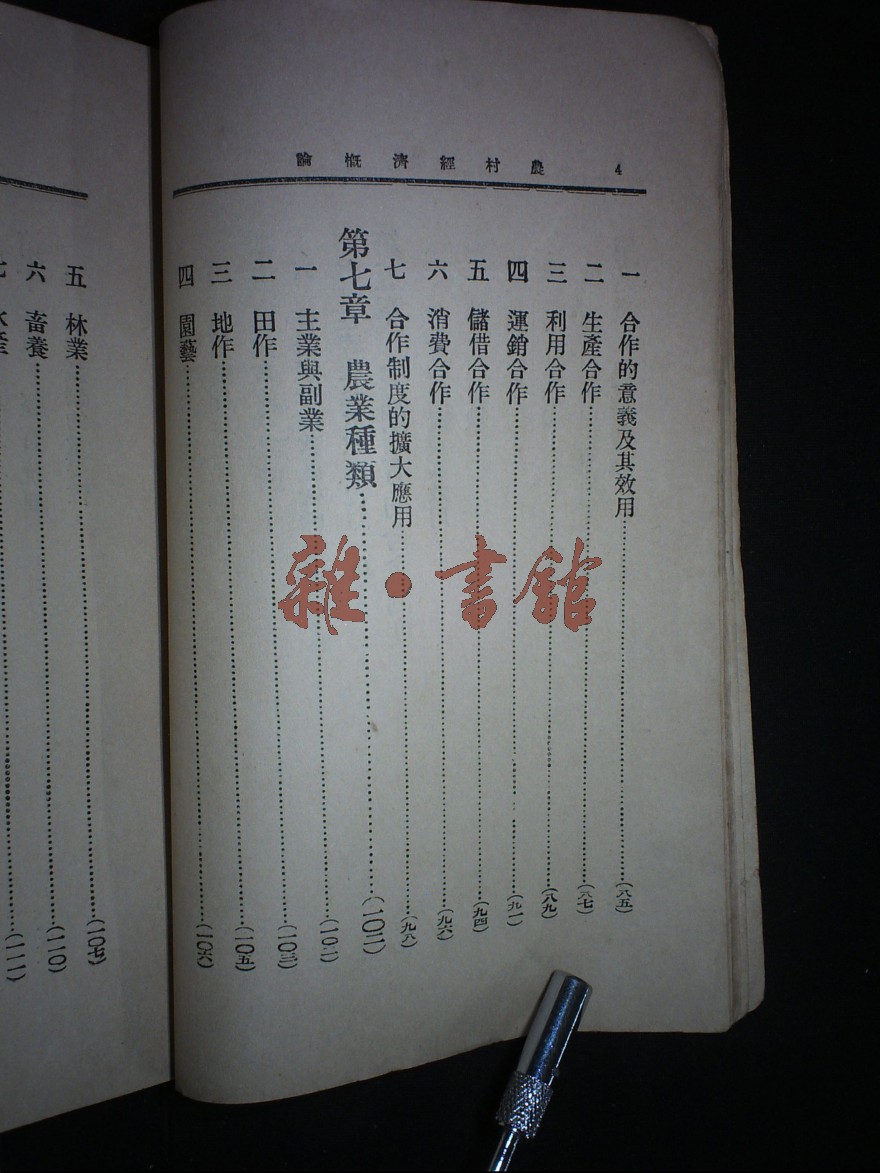 4 農村經濟概論
一 合作的意義及其效用……(八五)
二 生產合作……(八七)
三 利用合作……(八九)
四 運銷合作……(九一)
五 儲借合作……(九四)
六 消費合作……(九六)
七 合作制度的擴大應用……(九八)
第七章 農業種類……(一〇二)
一 主業與副業……(一〇二)
二 田作……(一〇三)
三 地作……(一〇五)
四 園藝……(一〇六)
五 林業……(一〇七)
六 畜養……(一一〇)
七 水產……(一一一)
雜·書館